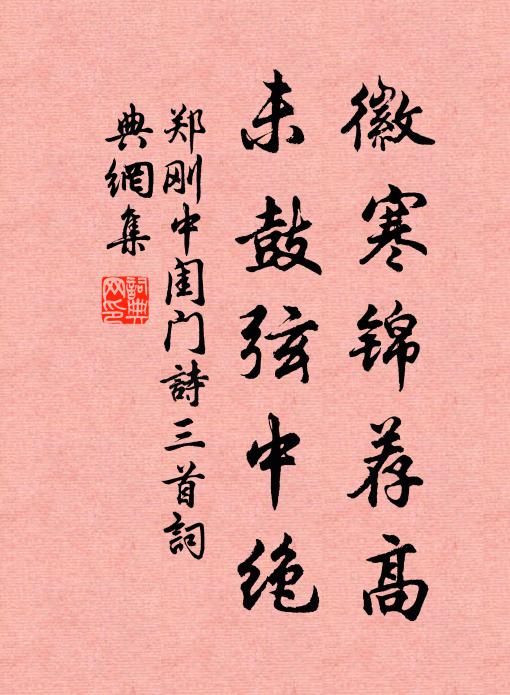 徽寒锦荐高
未鼓弦中绝
郑刚中闺门詩三首詞
典網集
詞典
网印